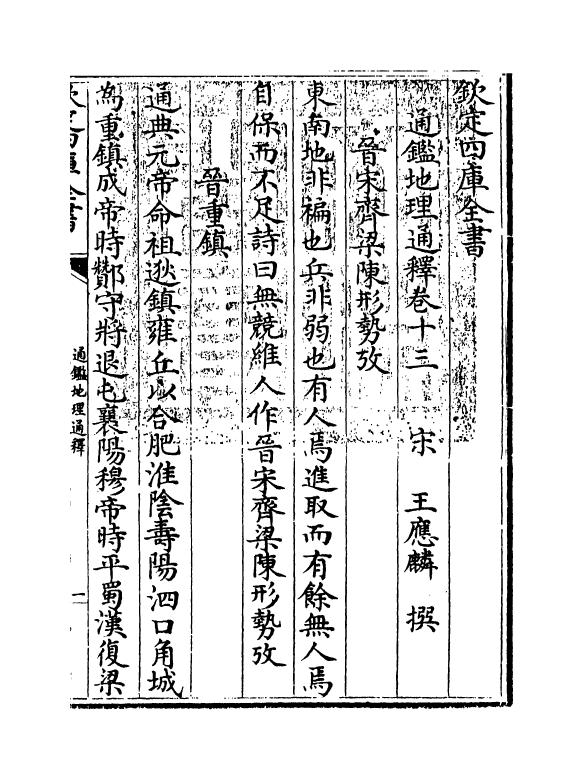 欽定四庫全書
通鑑地理通釋卷十三　宋　王應麟　撰
晉宋齊梁陳形勢攷
東南地非褊也兵非弱也有人焉進取而有餘無人焉
自保而不足詩曰無競維人作晉宋齊梁陳形勢攷
晉重鎮
通典元帝命祖逖鎮雍丘以合肥淮陰壽陽泗口角城
為重鎮成帝時酇守將退屯襄陽穆帝時平蜀漢復梁
欽定四庫全書
通鑑地理通釋
一